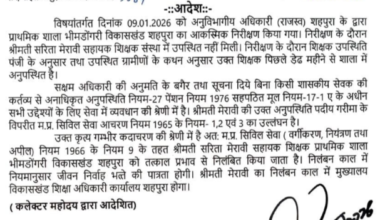 -:आदेश:-
विषयांतर्गत दिनांक 09.01.2026 को अनुविभागीय अधिकारी (राजस्व) शहपुरा के द्वारा
प्राथमिक शाला भीमडोंगरी विकासखंड शहपुरा का आकस्मिक निरीक्षण किया गया। निरीक्षण के दौरान
श्रीमती सरिता मेरावी सहायक शिक्षक संस्था में उपस्थित नहीं मिली। निरीक्षण के दौरान शिक्षक उपस्थिति
पंजी के अनुसार तथा उपस्थित ग्रामीणों के कथन अनुसार उक्त शिक्षक पिछले डेढ महीने से शाला में
अनुपस्थित है।
सक्षम अधिकारी की अनुमति के बगैर तथा सूचना दिये बिना किसी शासकीय सेवक की
कर्तव्य से अनाधिकृत अनुपस्थिति नियम-27 पेंशन नियम 1976 सहपठित मूल नियम-17-1 ए के अधीन
सभी उद्देश्यों के लिए सेवा में व्यवधान की श्रेणी में है। श्रीमती मेरावी की उक्त अनुपस्थिति पदीय गरीमा के
विपरीत म.प्र. सिविल आचरण नियम 1965 के नियम- 1,2 एवं 3 का उल्लंघन है।
उक्त कृत्य गम्भीर कदाचरण की श्रेणी में है अतः म.प्र. सिविल सेवा (वर्गीकरण, नियंत्रण तथा
अपील) नियम 1966 के नियम 9 के तहत श्रीमती सरिता मेरावी सहायक शिक्षक प्राथमिक शाला
भीमडोंगरी विकासखंड शहपुरा को तत्काल प्रभाव से निलंबित किया जाता है। निलंबन काल में
नियमानुसार जीवन निर्वाह भत्ते की पात्रता होगी। श्रीमती मेरावी का निलंबन काल में मुख्यालय
विकासखंड शिक्षा अधिकारी कार्यालय शहपुरा होगा।
(कलेक्टर महोदय द्वारा आदेशित)